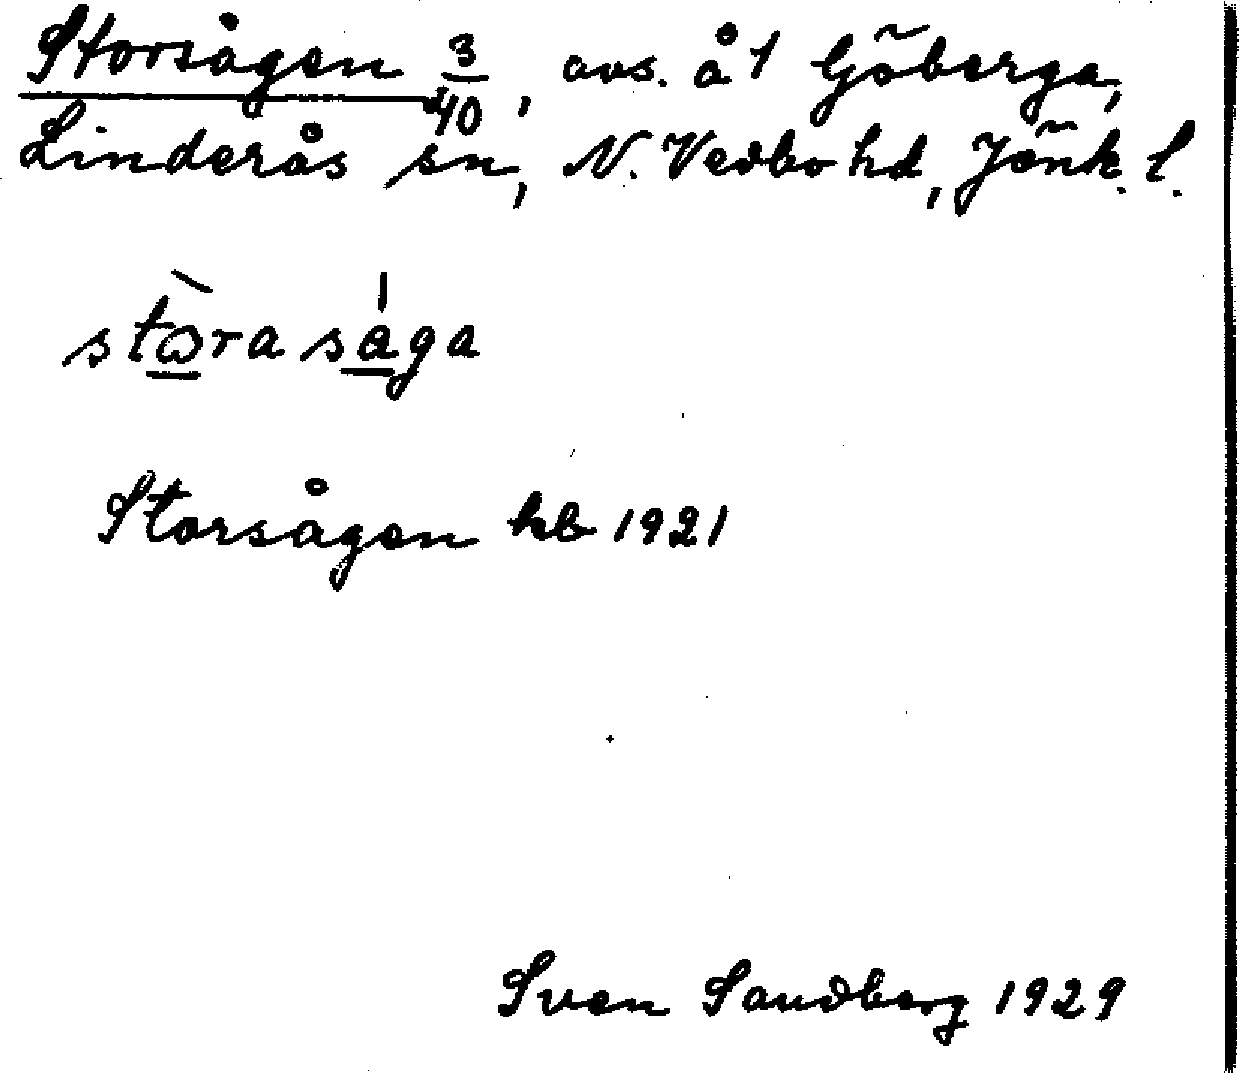 Storsågen 3/40, avs. å 1 Göberga,
Linderås sn, N. Vedbo hd, Jönk. l.
stὼra sága
Storsågen kb 1921
Sven Sandberg 1929